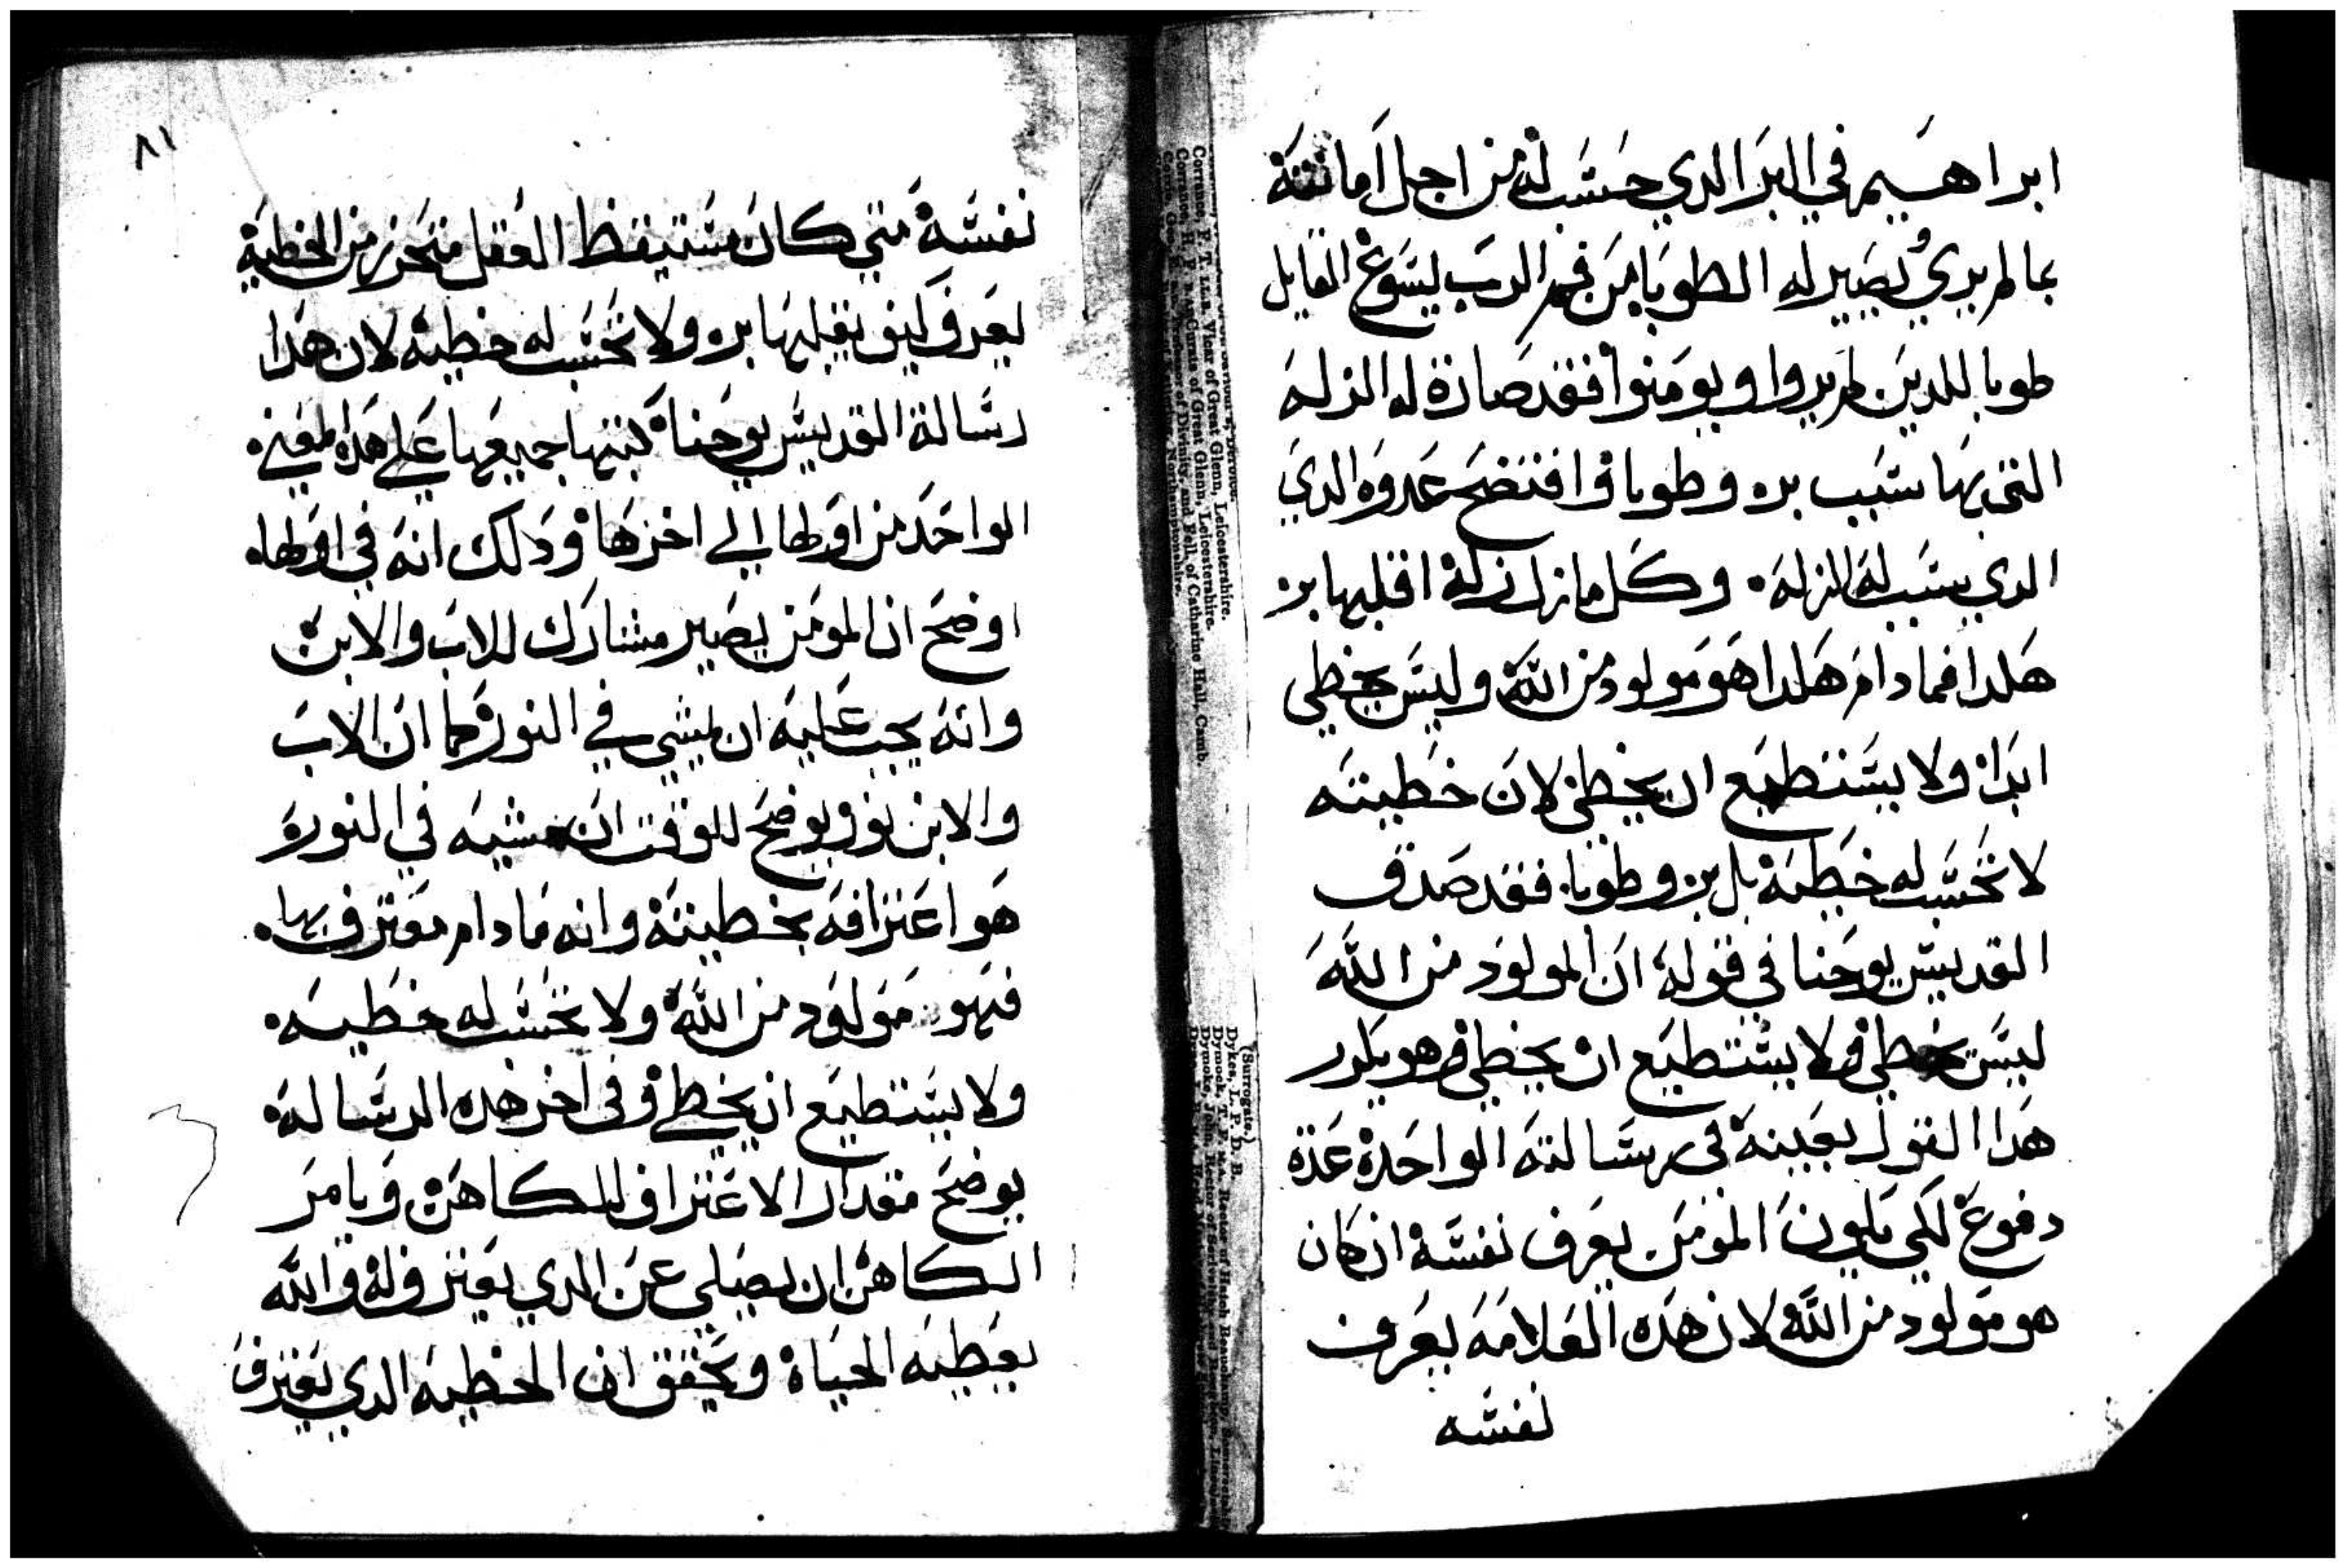 ابراهيم في البر الدي حسب له من اجل امانته
بما لم يري يصير له الطوبا من فم الرب يسوع القايل
طوبا للدين لم يروا ويومنوا فقد صارة له الزله
التي بها سبب بره وطوباه وافتضح عدوه الدي
الدي سبب له الزله وكل ما زل زلة اقلبها بر
هكدا فما دام هكدا هو مولود من الله وليس يخطي
ابدا ولا يستطيع ان يخطي لان خطيته
لا تحسب له خطيه بل بر وطوبا فقد صدق
القديس يوحنا في قوله ان المولود من الله
ليس يخطي ولا يستطيع ان يخطي وهو يكرر
هدا القول بعينه في رسالته الواحدة عدة
دفوع لكي يكون المومن يعرف نفسه ان كان
هو مولود من الله لان هده العلامه يعرف
نفسه
٨١
نفسه متي كان مستيقظ العقل متحرز من الخطية
يعرف كيف يقلبها بره ولا تحسب له خطية لان هدا
رسالة القديس يوحنا كتبها جميعها علي هدا المعني
الواحد من اولها الي اخرها ودلك انه في اولها
اوضح ان المومن يصير مشارك للاب والابن
وانه يجب عليه ان يمشي في النور كما ان الاب
والابن نور ويوضح للوقت ان مشيه في النور
هو اعترافه بخطيته وانه ما دام معترف بها
فهو مولود من الله ولا تحسب له خطيه
ولا يستطيع ان يخطي وفي اخر هده الرسالة
يوضح مقدار الاعتراف للكاهن ويامر
الكاهن ان يصلي عن الدي يعترف له والله
يعطيه الحياة وتحقق ان الخطيه الدي يعترف
Corrance, F. T. LL.B. Vicar of Great Glenn, Leicestershire.
Corrance, H. F. B.A. Curate of Great Glenn, Leicestershire.
of Divinity, and Fell. of Catharine Hall, Camb.
Northamptonshire.
(Surrogate.)
Dykes, L. P. D. B.
Dymock, T. F. M.A. Rector of Hatch Beauchamp
Dymoke, John, Rector of Scrivelsby